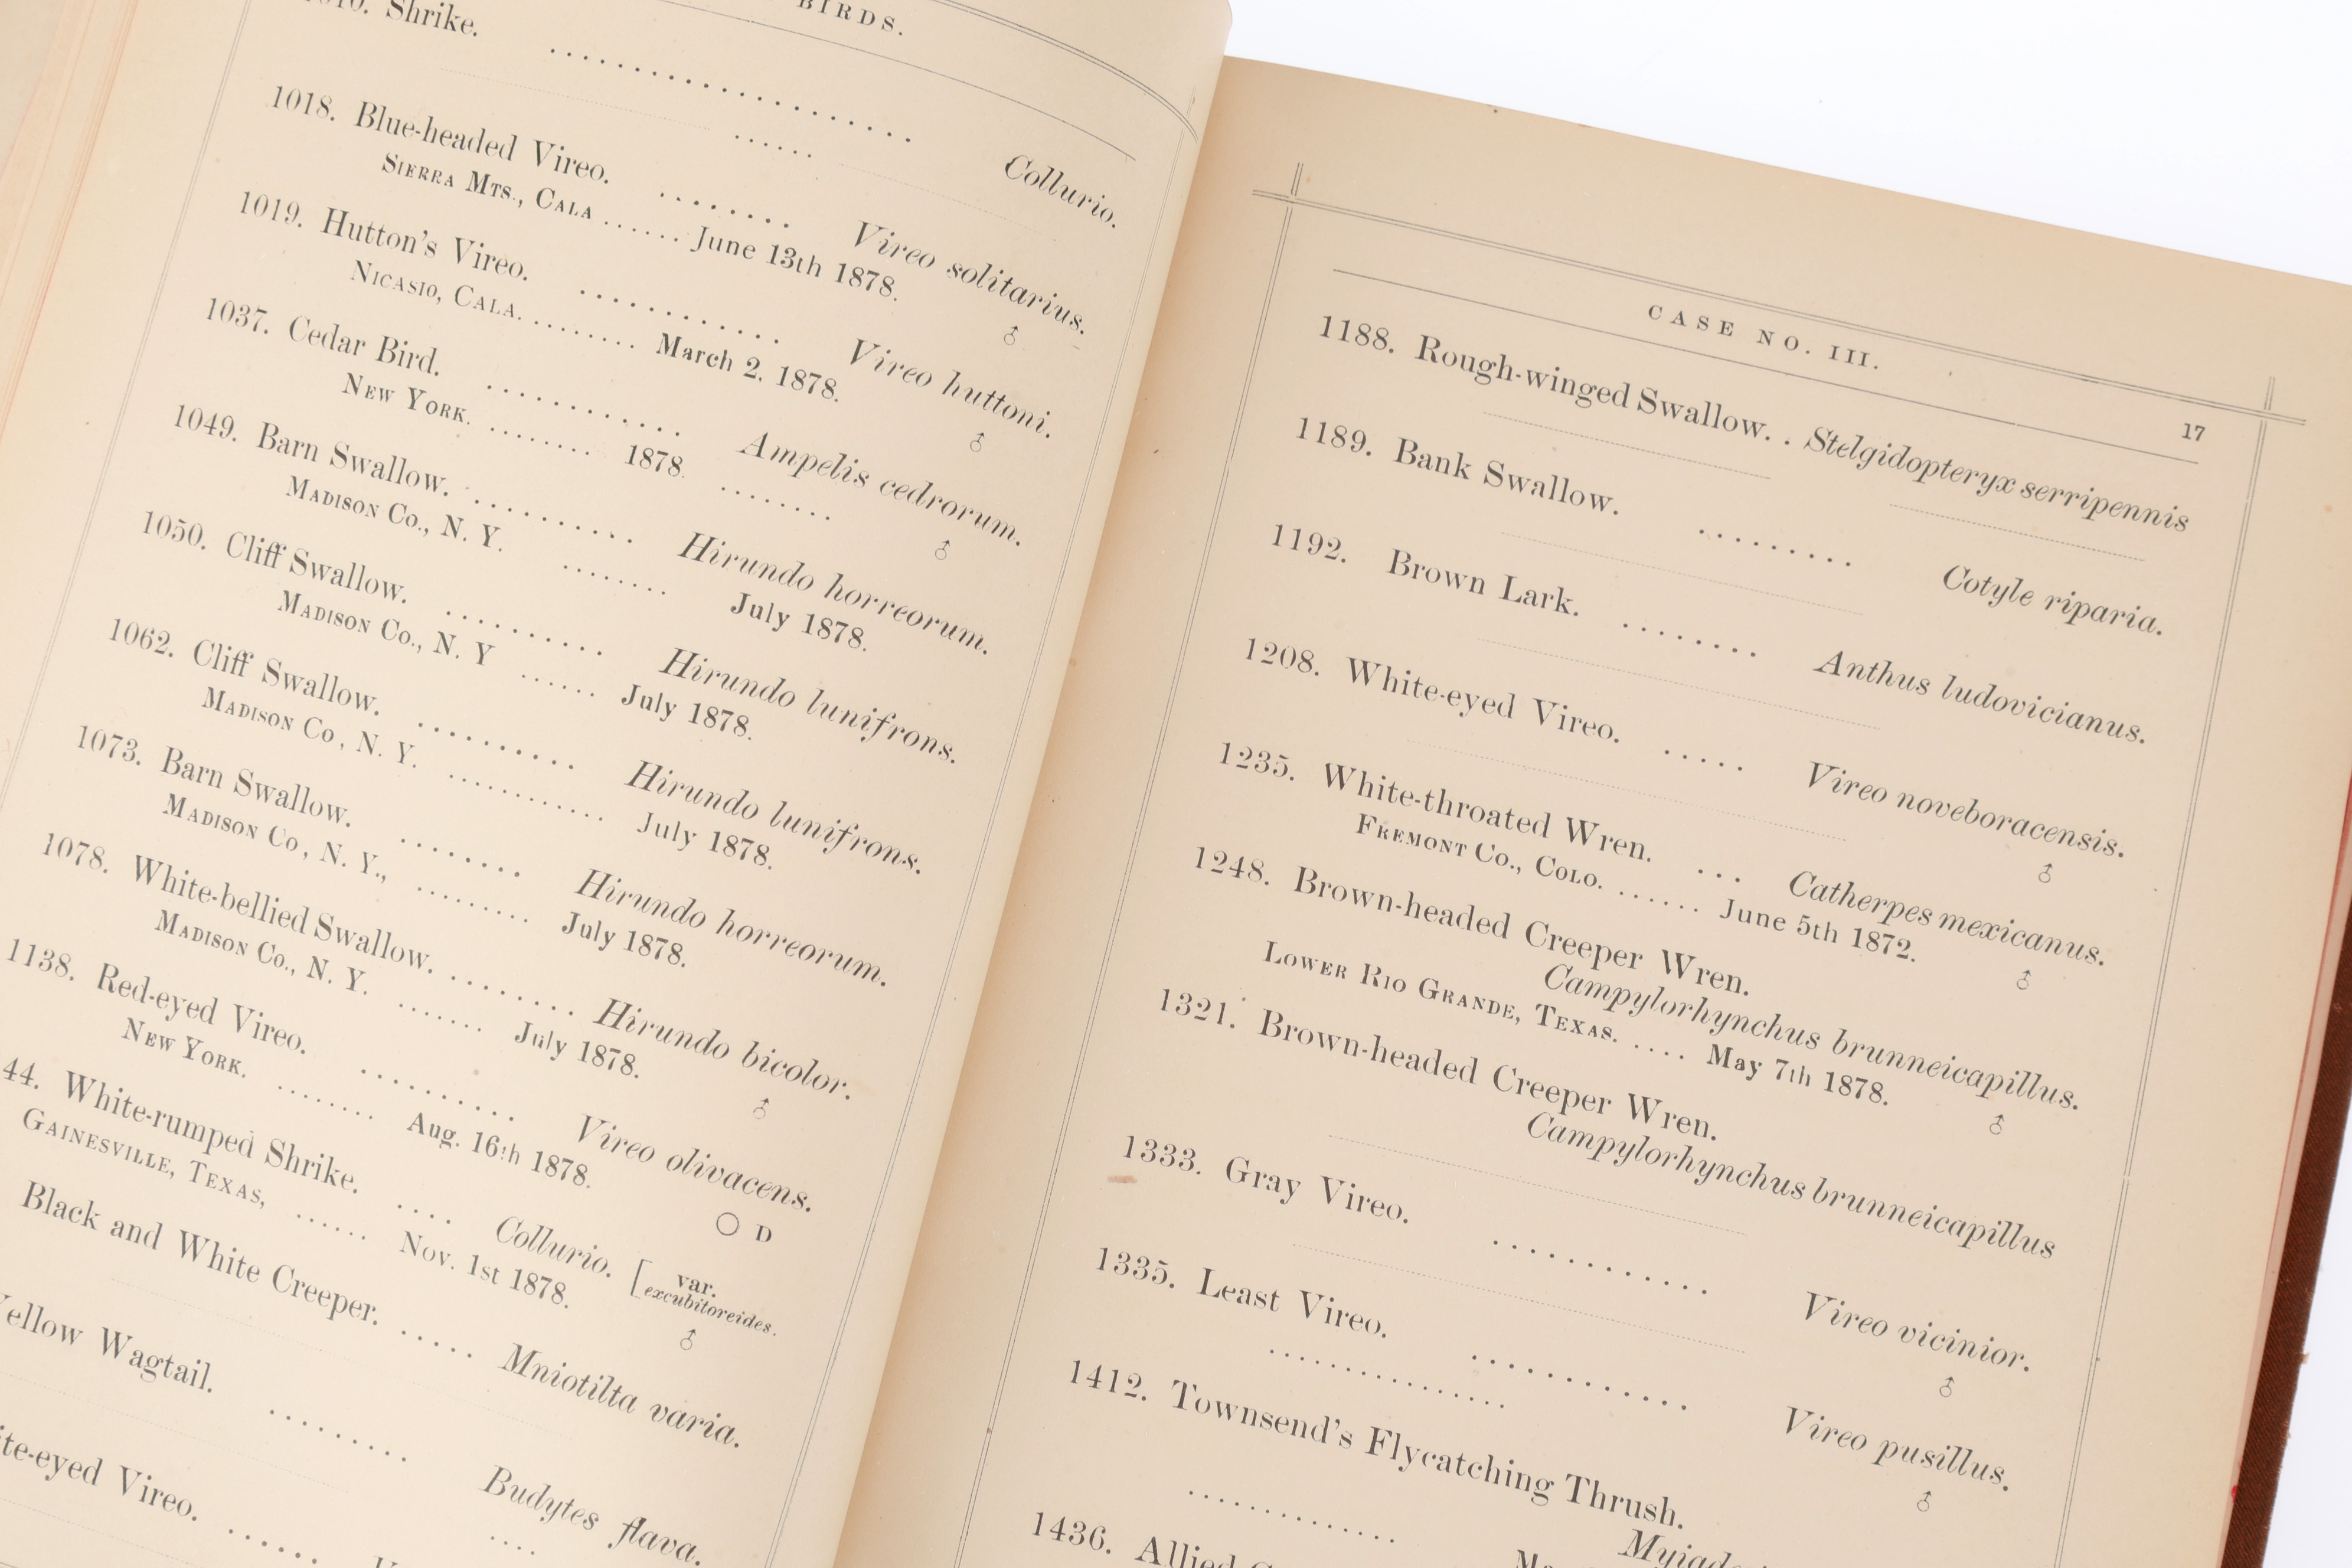 BIRDS.
Shrike. .................... Collurio.
......
1018. Blue-headed Vireo. ........ Vireo solitarius.
SIERRA MTS., CALA ...... June 13th 1878. ♂
1019. Hutton's Vireo. ........... Vireo huttoni.
NICASIO, CALA. ........ March 2, 1878. ♂
1037. Cedar Bird. ........... Ampelis cedrorum.
NEW YORK. ........ 1878. ........ ♂
1049. Barn Swallow. .......... Hirundo horreorum.
MADISON CO., N. Y. ........ July 1878.
1050. Cliff Swallow. .......... Hirundo lunifrons.
MADISON CO., N. Y ...... July 1878.
1062. Cliff Swallow. .......... Hirundo lunifrons.
MADISON CO, N. Y. ............ July 1878.
1073. Barn Swallow. ........ Hirundo horreorum.
MADISON CO, N. Y., ......... July 1878.
1078. White-bellied Swallow. ......... Hirundo bicolor.
MADISON CO., N. Y. ....... July 1878. ♂
1138. Red-eyed Vireo. .......... Vireo olivacens.
NEW YORK. ........ Aug. 16th 1878. ○ D
44. White-rumped Shrike. .... Collurio. [var. excubitoreides.
GAINESVILLE, TEXAS, ...... Nov. 1st 1878. ♂
Black and White Creeper. ...... Mniotilta varia.
Yellow Wagtail. ........ Budytes flava.
....
te-eyed Vireo. ......
CASE NO. III. 17
1188. Rough-winged Swallow. . . Stelgidopteryx serripennis
1189. Bank Swallow. ......... Cotyle riparia.
1192. Brown Lark. ........ Anthus ludovicianus.
1208. White-eyed Vireo. ..... Vireo noveboracensis.
♂
1235. White-throated Wren. ... Catherpes mexicanus.
FREMONT CO., COLO. ...... June 5th 1872. ♂
1248. Brown-headed Creeper Wren.
Campylorhynchus brunneicapillus.
LOWER RIO GRANDE, TEXAS. .... May 7th 1878. ♂
1321. Brown-headed Creeper Wren.
Campylorhynchus brunneicapillus
1333. Gray Vireo. ........... Vireo vicinior.
♂
1335. Least Vireo. ........... Vireo pusillus.
.............. ♂
1412. Townsend's Flycatching Thrush.
1436. Allied